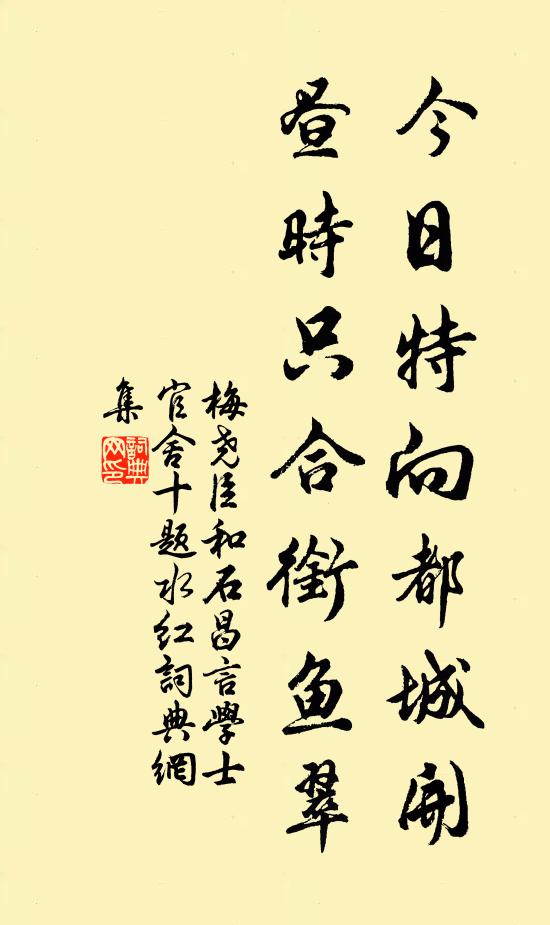 今日特向都城開
昼時只合銜鱼翠
梅尧臣和石昌言學士
官舍十题水红詞典網
集
詞典
网印